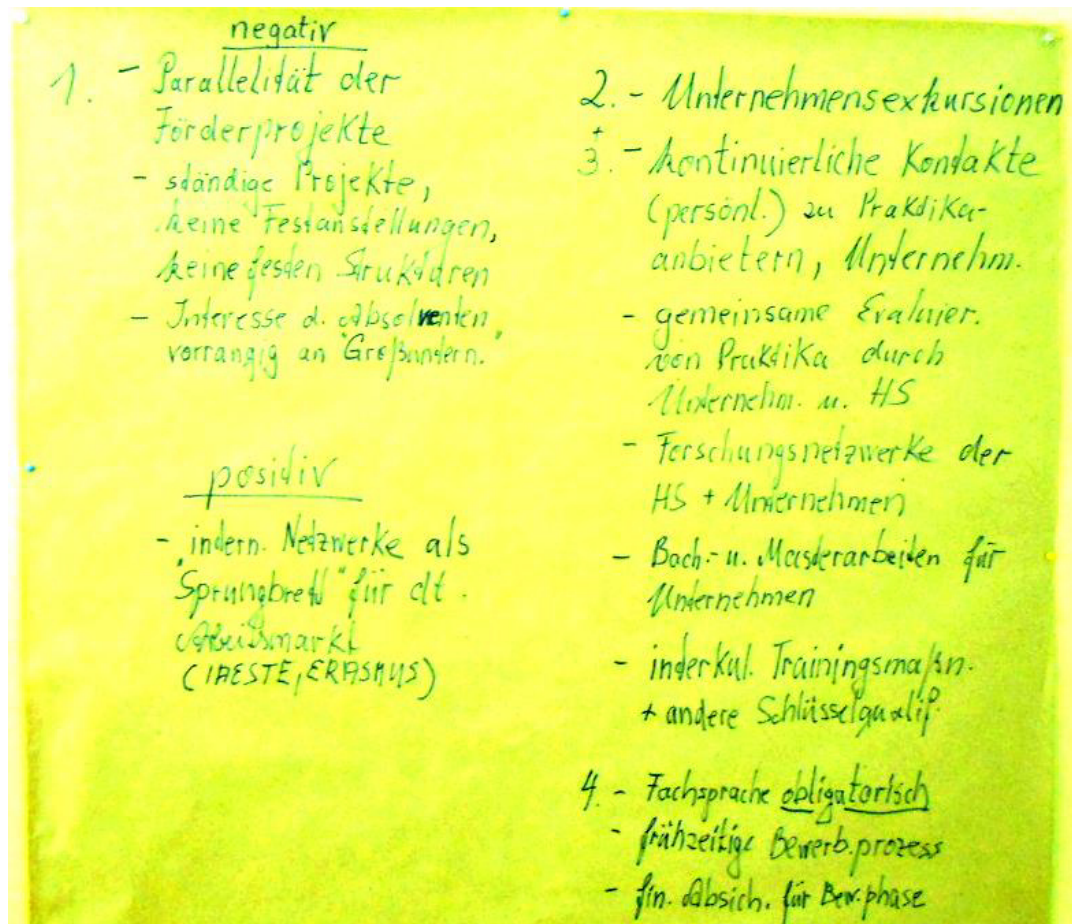 negativ
1. - Parallelität der
Förderprojekte
- ständige Projekte,
keine Festanstellungen,
keine festen Strukturen
- Interesse d. Absolventen
vorrangig an "Großuntern."
positiv
- intern. Netzwerke als
"Sprungbrett" für dt.
Arbeitsmarkt
(IAESTE, ERASMUS)
2. - Unternehmensexkursionen
+
3. - kontinuierliche Kontakte
(persönl.) zu Praktika-
anbietern, Unternehm.
- gemeinsame Evaluier.
von Praktika durch
Unternehm. u. HS
- Forschungsnetzwerke der
HS + Unternehmen
- Bach.- u. Masterarbeiten für
Unternehmen
- interkul. Trainingsmaßn.
+ andere Schlüsselqualif.
4. - Fachsprache obligatorisch
- frühzeitige Bewerb.prozess
- fin. Absich. für Bew.phase